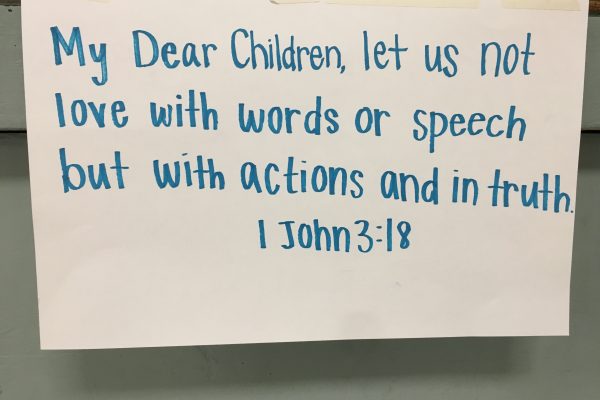 My Dear Children, let us not
love with words or speech
but with actions and in truth.
1 John 3:18